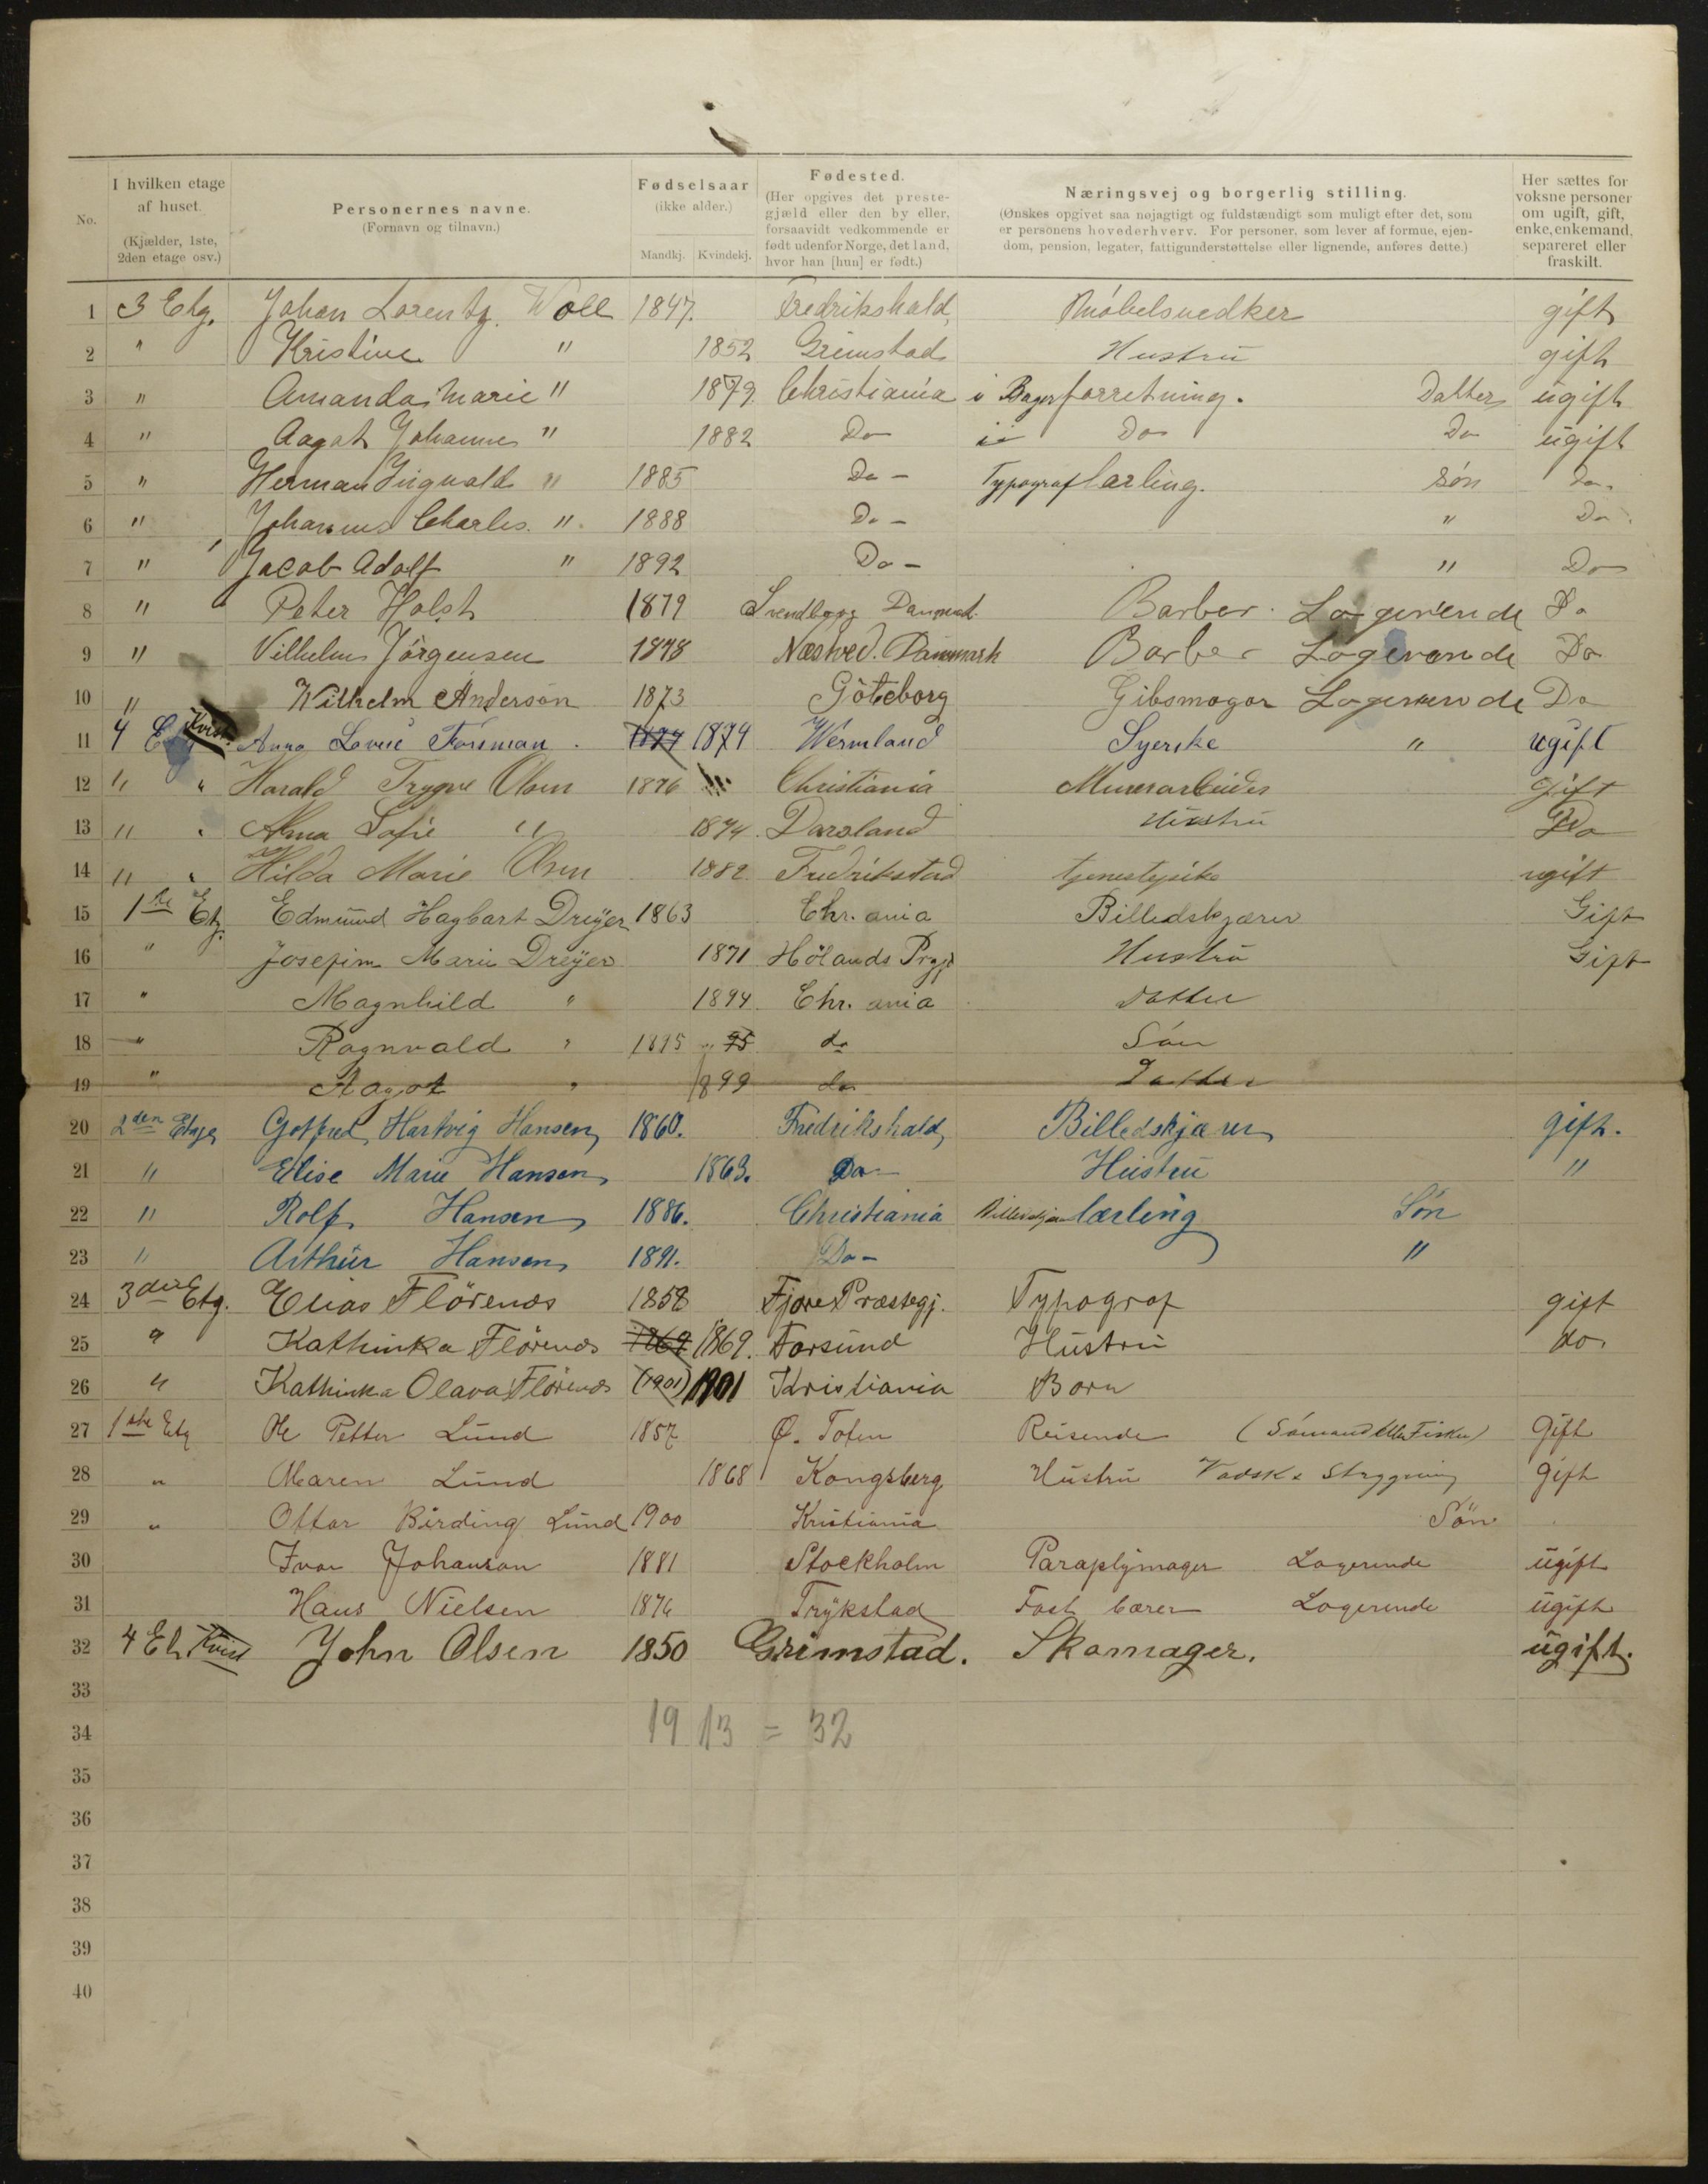 No.
I hvilken etage af huset. (Kjælder, 1ste, 2den etage osv.)
Personernes navne. (Fornavn og tilnavn.)
Fødselsaar (ikke alder.) Mandkj. Kvindekj.
Fødested. (Her opgives det prestegjæld eller den by eller, forsaavidt vedkommende er født udenfor Norge, det land, hvor han [hun] er født.)
Næringsvej og borgerlig stilling. (Ønskes opgivet saa nøjagtigt og fuldstændigt som muligt efter det, som er personens hovederhverv. For personer, som lever af formue, ejendom, pension, legater, fattigunderstøttelse eller lignende, anføres dette.)
Her sættes for voksne personer om ugift, gift, enke, enkemand, separeret eller fraskilt.
1 3 Etg. Johan Lorentz Woll 1847. Fredrikshald, Møbelsnedker gift
2 " Kristine " 1852 Grimstad Hustru gift
3 " Amanda Marie " 1879 Christiania i Bagerforretning. Datter ugift
4 " Aagot Johanne " 1882 Do Do Do ugift
5 " Herman Ingvald " 1885 Do - Typograflærling. Søn Do.
6 " Johannes Charles. " 1888 Do - " Do.
7 " Jacob Adolf " 1892 Do - " Do
8 " Peter Holst 1879 Svendborg Danmark. Barber. Logerende Do
9 " Vilhelm Jörgensen 1878 Næstved. Danmark Barber Logerende Do
10 " Wilhelm Anderson 1873 Göteborg Gibsmager Logerende Do
11 4 Etg Kvist. Anna Lovise Forsman. 1874 1874 Wermland Syerske " ugift
12 " " Harald Trygve Olsen 1876 Christiania Murerarbeider Gift
13 " " Alma Sofie " 1874. Darsland Hustru Do
14 " " Hilda Marie Olsen 1882 Fredrikstad tjenestepike ugift
15 1ste Etg. Edmund Hagbart Dreyer 1863 Chr. ania Billedskjærer Gift
16 " Josefine Marie Dreyer 1871 Hölands Prgjd Hustru Gift
17 " Magnhild " 1894. Chr. ania Datter
18 " Ragnvald " 1895 " 95 do Søn
19 " Aagot " 1899 do Datter
20 2den Etage Gotfred Hartvig Hansen, 1860. Fredrikshald, Billedskjærer gift.
21 " Elise Marie Hansen 1863. Do- Hustru "
22 " Rolf Hansen 1886. Christiania Billedskjærlærling Søn
23 " Arthur Hansen 1891. Do- "
24 3die Etg. Elias Flörenæs 1858 Fjære Præstegj. Typograf gift
25 " Kathinka Flörenæs 1869 1869. Farsund Hustru do.
26 " Kathinka Olava Flörenæs (1901) 1901 Kristiania Barn
27 1ste Etg Ole Petter Lund 1857 Ø. Toten Reisende (Sömand eller Fisker) Gift
28 " Maren Lund 1868 Kongsberg Hustru Vadsk & Strygning Gift
29 " Ottar Birding Lund 1900 Kristiania Sön
30 Ivar Johanson 1881 Stockholm Paraplymager Logerende ugift
31 Hans Nielsen 1876 Trykstad Fast bærer Logerende ugift
32 4 Et. Kvist John Olsen 1850 Grimstad. Skomager. ugift.
33
34 19 13 = 32
35
36
37
38
39
40